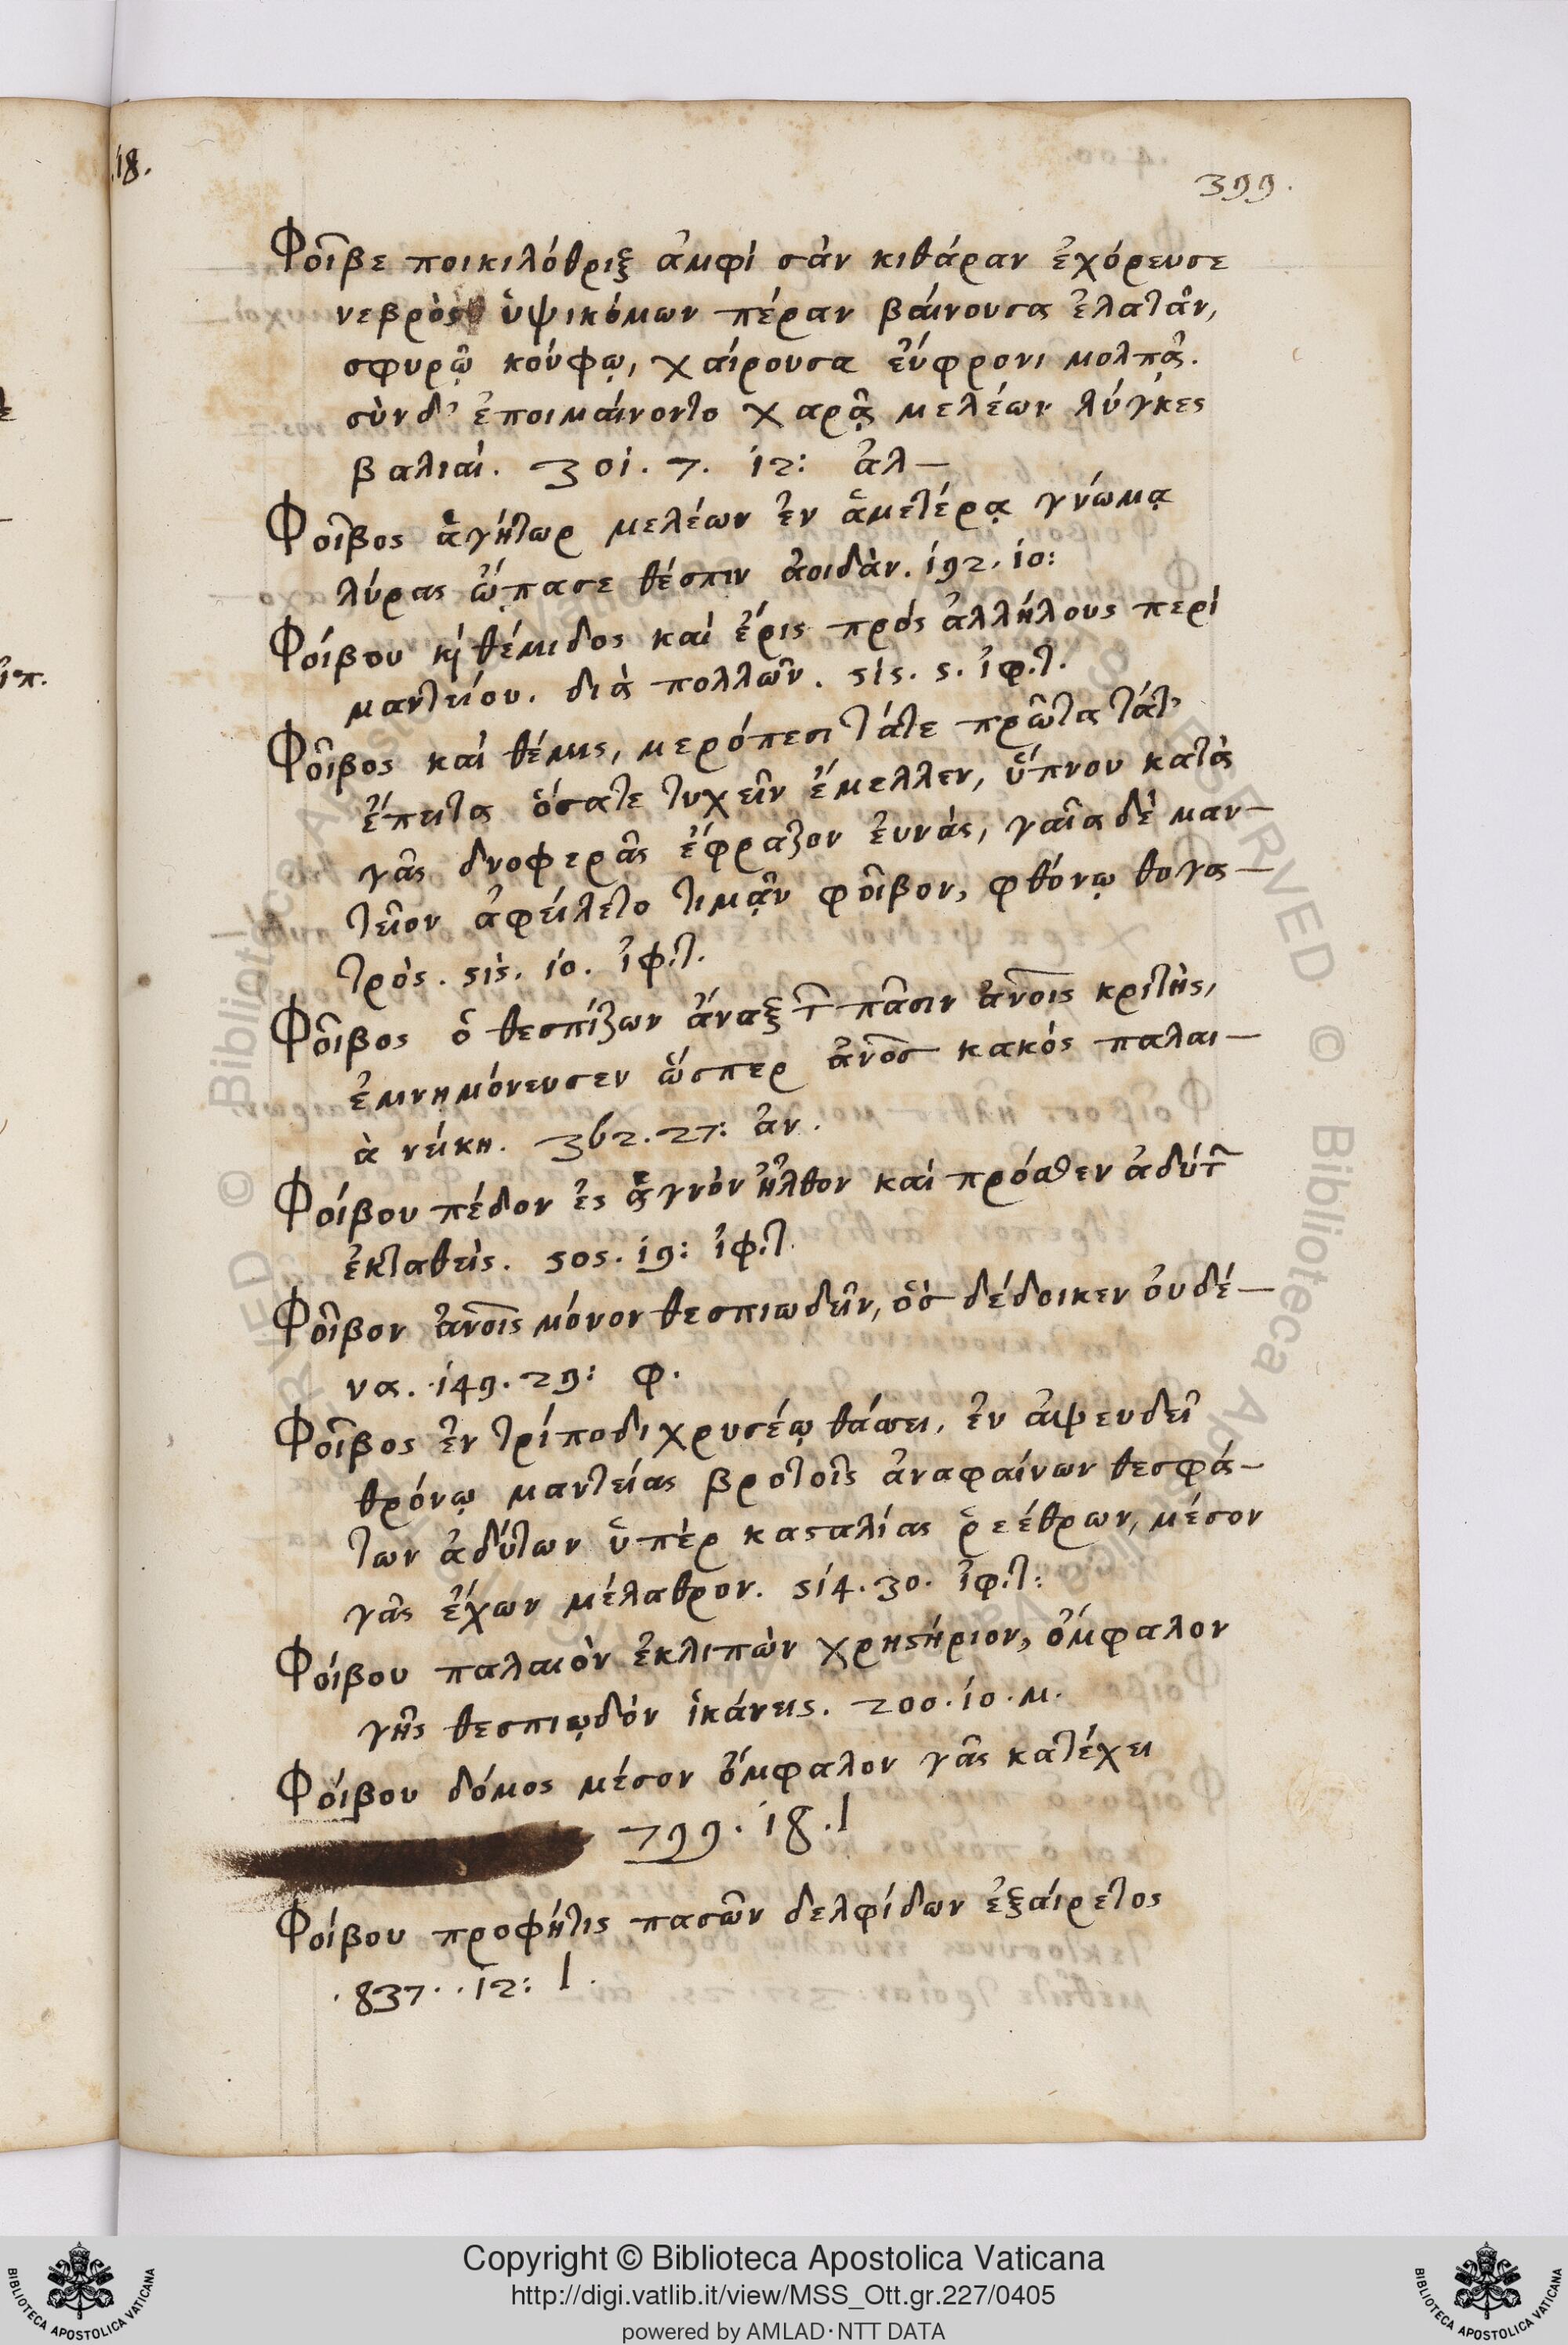 .18.
399.
Φοῖβε ποικιλόθριξ ἀμφὶ σὰν κιθάραν ἐχόρευσε
νεβρὸς ὑψικόμων πέραν βαίνουσα ἐλατᾶν,
σφυρῷ κούφῳ, χαίρουσα εὔφρονι μολπᾷ.
σὺν δ' ἐποιμαίνοντο χαρᾷ μελέων λύγκες
βαλιαί. 301. 7. 12: ἀλ—
Φοῖβος ἁγήτωρ μελέων ἐν ἁμετέρᾳ γνώμᾳ
λύρας ὤπασε θέσπιν ἀοιδὰν. 192. 10:
Φοίβου κὶ θέμιδος καὶ ἔρις πρὸς ἀλλήλους περὶ
μαντείου. διὰ πολλῶν. 515. 5. ἰφ.τ.
Φοῖβος καὶ θέμις, μερόπεσι τάτε πρῶτα τάτ'
ἔπειτα ὅσατε τυχεῖν ἔμελλεν, ὕπνου κατὰ
γᾶς δνοφερᾶς ἔφραζον εὐνάς, γαῖα δὲ μαν—
τεῖον ἀφείλετο τιμᾶν φοῖβον, φθόνῳ θυγα—
τρὸς. 515. 10. ἰφ.τ.
Φοῖβος ὁ θεσπίζων ἄναξ τ̅ πᾶσιν ἀν̅οις κριτὴς,
ἐμνημόνευσεν ὥσπερ ἀν̅ος κακὸς παλαι—
ὰ νείκη. 362. 27: ἀν.
Φοίβου πέδον ἐς ἁγνὸν ἦλθον καὶ πρόσθεν ἀδύτ͂
ἐκταθεὶς. 505. 19: ἰφ.τ.
Φοῖβον ἀν̅οις μόνον θεσπιωδεῖν, ὃς δέδοικεν οὐδέ—
να. 149. 29: φ.
Φοῖβος ἐν τρίποδι χρυσέῳ θάσσει, ἐν ἀψευδεῖ
θρόνῳ μαντείας βροτοῖς ἀναφαίνων θεσφά—
των ἀδύτων ὑπὲρ καςαλίας ῥεέθρων, μέσον
γᾶς ἔχων μέλαθρον. 514. 30. ἰφ.τ:
Φοίβου παλαιὸν ἐκλιπὼν χρηςήριον, ὄμφαλον
γῆς θεσπιῳδὸν ἱκάνεις. 200. 10. μ.
Φοίβου δόμος μέσον ὄμφαλον γᾶς κατέχει
799. 18. l
Φοίβου προφήτις πασῶν δελφίδων ἐξαίρετος
. 837. . 12: l.
Copyright © Biblioteca Apostolica Vaticana
http://digi.vatlib.it/view/MSS_Ott.gr.227/0405
powered by AMLAD·NTT DATA